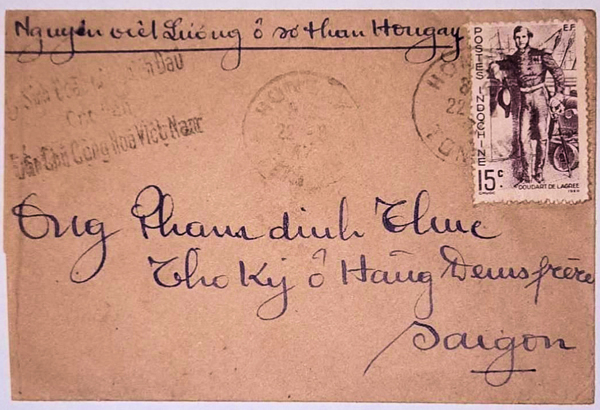 Nguyễn viết Lương ở sở than Hongay
Dầu
Dân Chủ Cộng Hoà Việt Nam
HON
22-8
HON
8
22
TONKIN
POSTES INDOCHINE
E.F.
15c.
DOUDART DE LAGRÉE
Ông Pham đinh Thuc
Thơ Ký ở Hãng Denis frère
Saigon